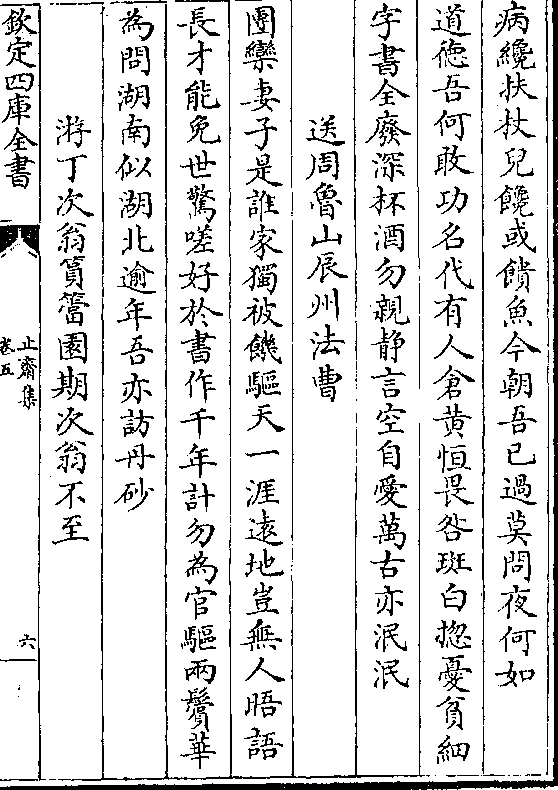 病纔扶杖兒饞或饋魚今朝吾已過莫問夜何如
道徳吾何敢功名代有人倉黄恒畏咎斑白揔憂貧細
字書全廢深杯酒勿親静言空自愛萬古亦泯泯
送周魯山辰州法曹
團欒妻子是誰家獨被饑驅天一涯逺地豈無人晤語
長才能免世驚嗟好於書作千年計勿為官驅兩鬢華
為問湖南似湖北逾年吾亦訪丹砂
游丁次翁篔簹園期次翁不至
欽定四庫全書
止齋集
卷五
六